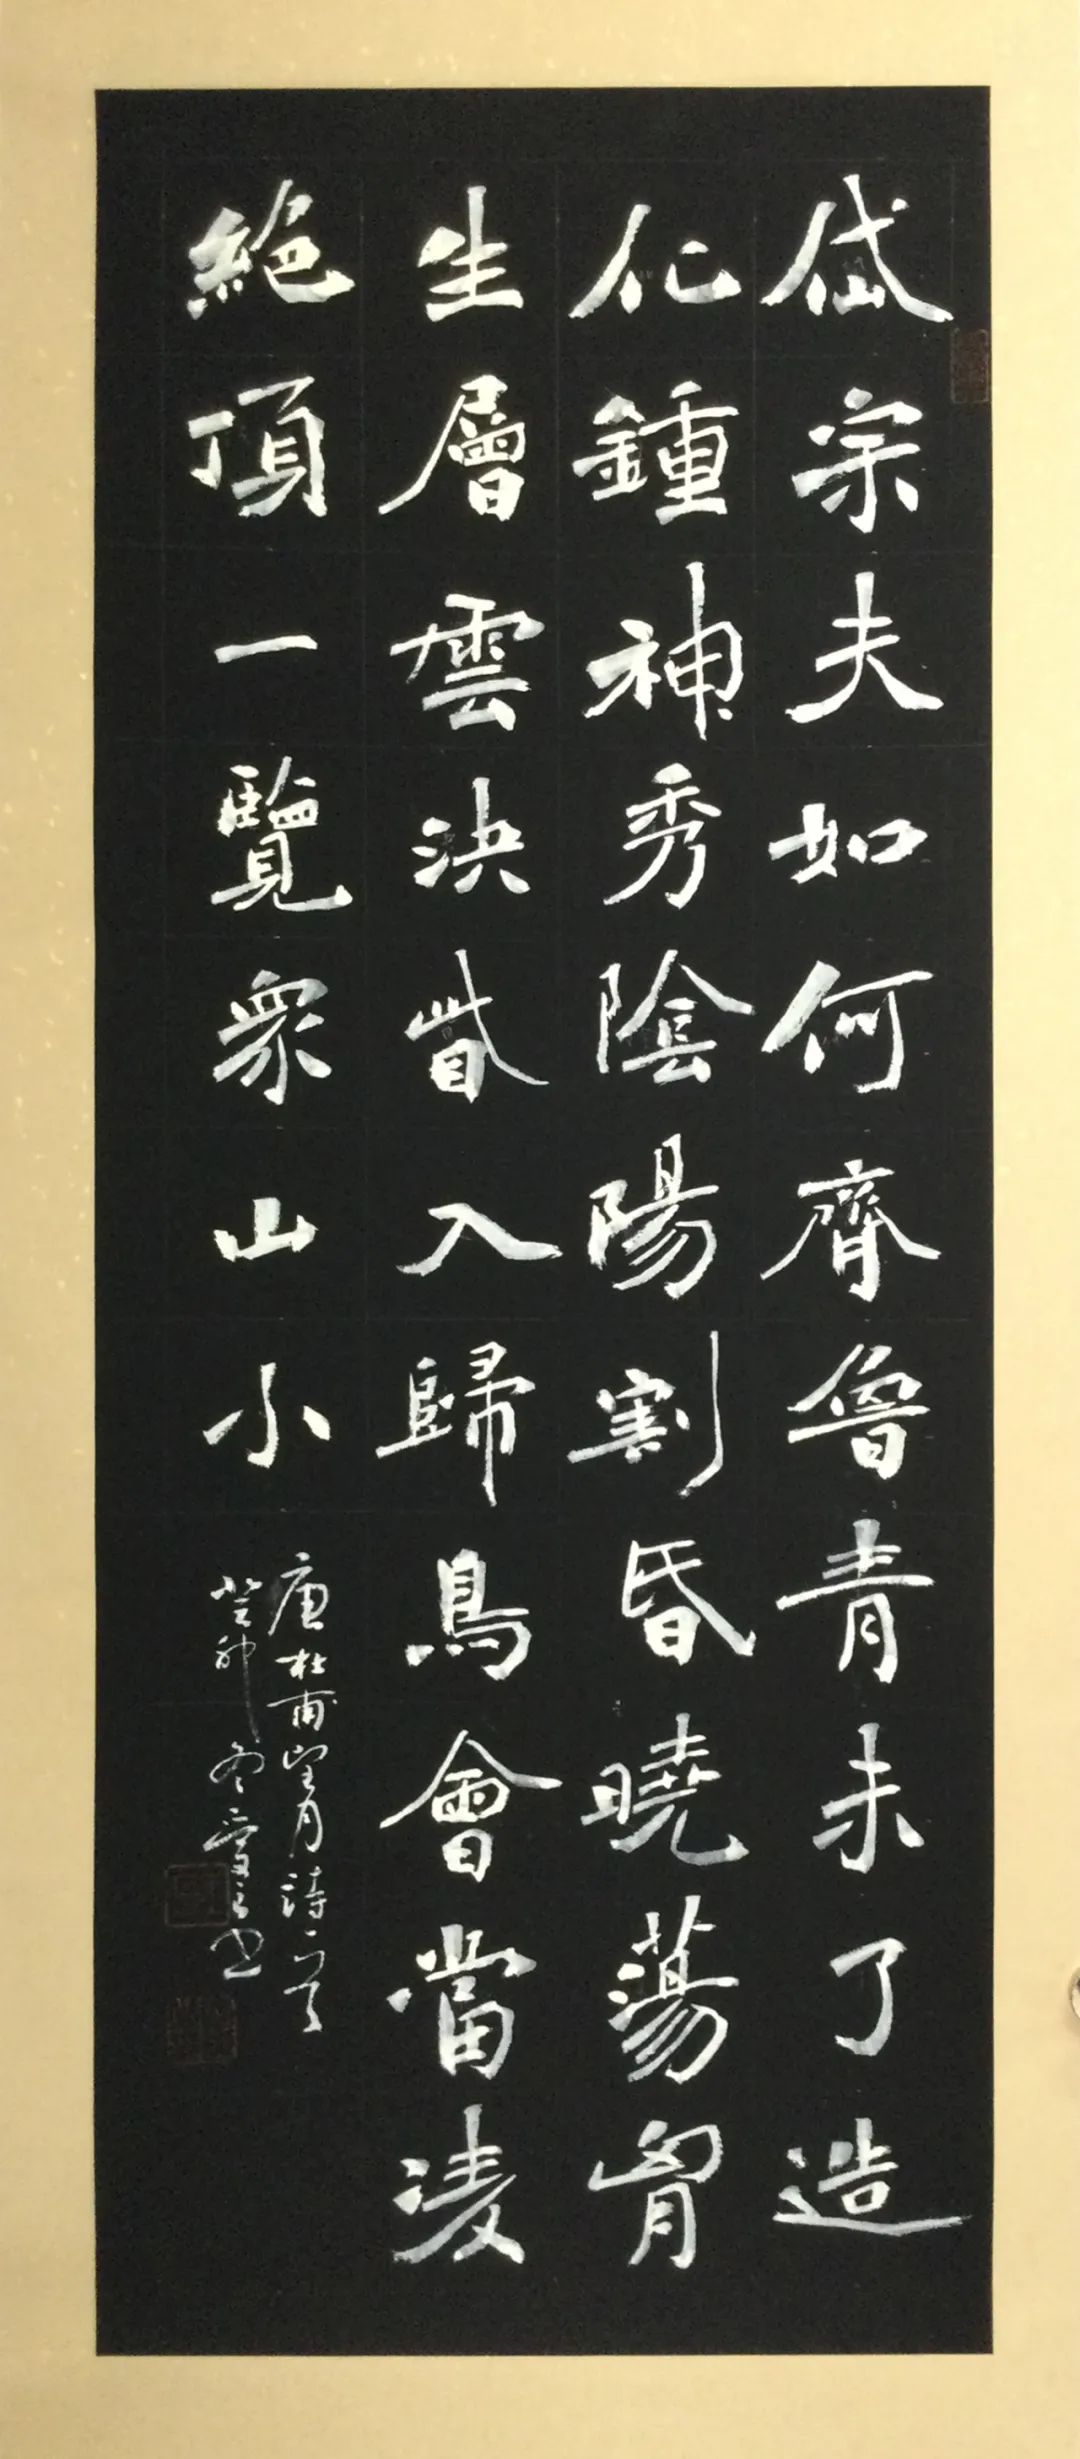 岱宗夫如何齊魯青未了造
化鍾神秀陰陽割昏曉蕩胷
生層雲決眥入歸鳥會當凌
絕頂一覽衆山小
唐杜甫望月詩一首
癸卯冬書